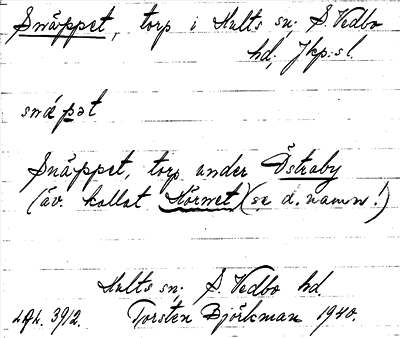 Snäppet, torp i Hults sn; S. Vedbo
hd; Jkp:s l.
snæ̀pət
Snäppet, torp under Östraby
(äv. kallat Hörnet) (se d. namn!)
Hults sn; S. Vedbo hd.
LAL. 3912. Torsten Björkman 1940.